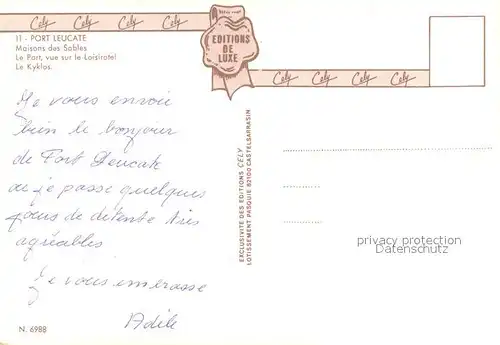 Cely Cely Cely Cely
11 - PORT LEUCATE
Maisons des Sables
Le Port, vue sur le Loisirotel
Le Kyklos.
EDITIONS
DE
LUXE
Cely Cely Cely Cely
Je vous envoie
bien le bonjour
de Port Leucate
ou je passe quelques
jours de détente très
agréables
Je vous embrasse
Adèle
EXCLUSIVITE DES EDITIONS CELY
LOTISSEMENT PASQUIE 82100 CASTELSARRASIN
privacy protection
Datenschutz
N. 6988